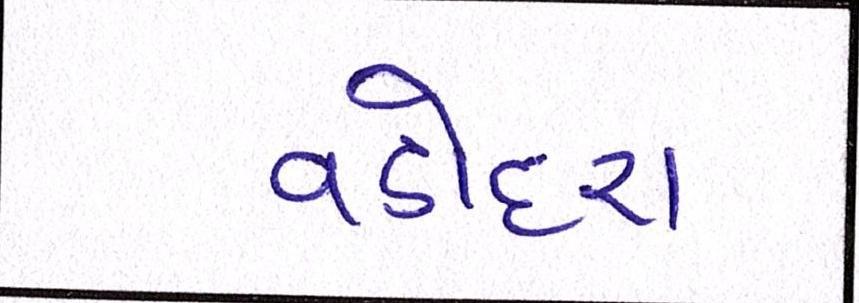 વડોદરા